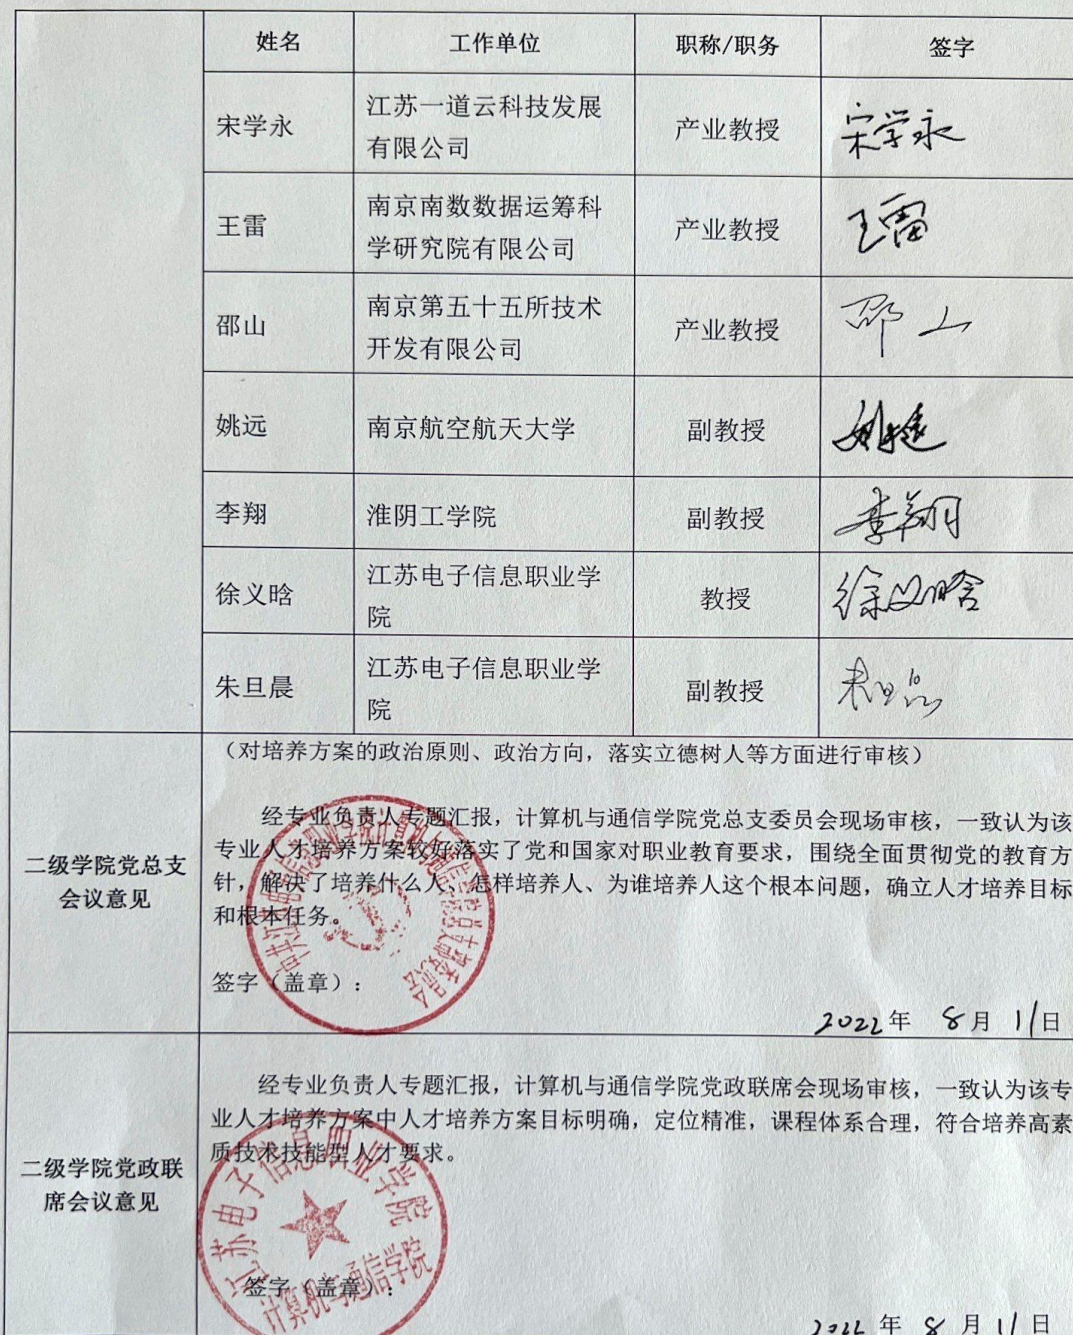 姓名 工作单位 职称/职务 签字
宋学永 江苏一道云科技发展 产业教授 宋学永
有限公司
王雷 南京南数数据运筹科 产业教授 王雷
学研究院有限公司
邵山 南京第五十五所技术 产业教授 邵山
开发有限公司
姚远 南京航空航天大学 副教授 姚远
李翔 淮阴工学院 副教授 李翔
徐义晗 江苏电子信息职业学 教授 徐义晗
院
朱旦晨 江苏电子信息职业学 副教授 朱旦晨
院
二级学院党总支
会议意见
（对培养方案的政治原则、政治方向，落实立德树人等方面进行审核）
经专业负责人专题汇报，计算机与通信学院党总支委员会现场审核，一致认为该
专业人才培养方案较好落实了党和国家对职业教育要求，围绕全面贯彻党的教育方
针，解决了培养什么人、怎样培养人、为谁培养人这个根本问题，确立人才培养目标
和根本任务。
签字（盖章）：
中共江苏电子信息职业学院计算机与通信学院总支部委员会
2022年 8月 11日
二级学院党政联
席会议意见
经专业负责人专题汇报，计算机与通信学院党政联席会现场审核，一致认为该专
业人才培养方案中人才培养方案目标明确，定位精准，课程体系合理，符合培养高素
质技术技能型人才要求。
江苏电子信息职业学院
计算机与通信学院
签字（盖章）：
2022 年 8 月 11 日